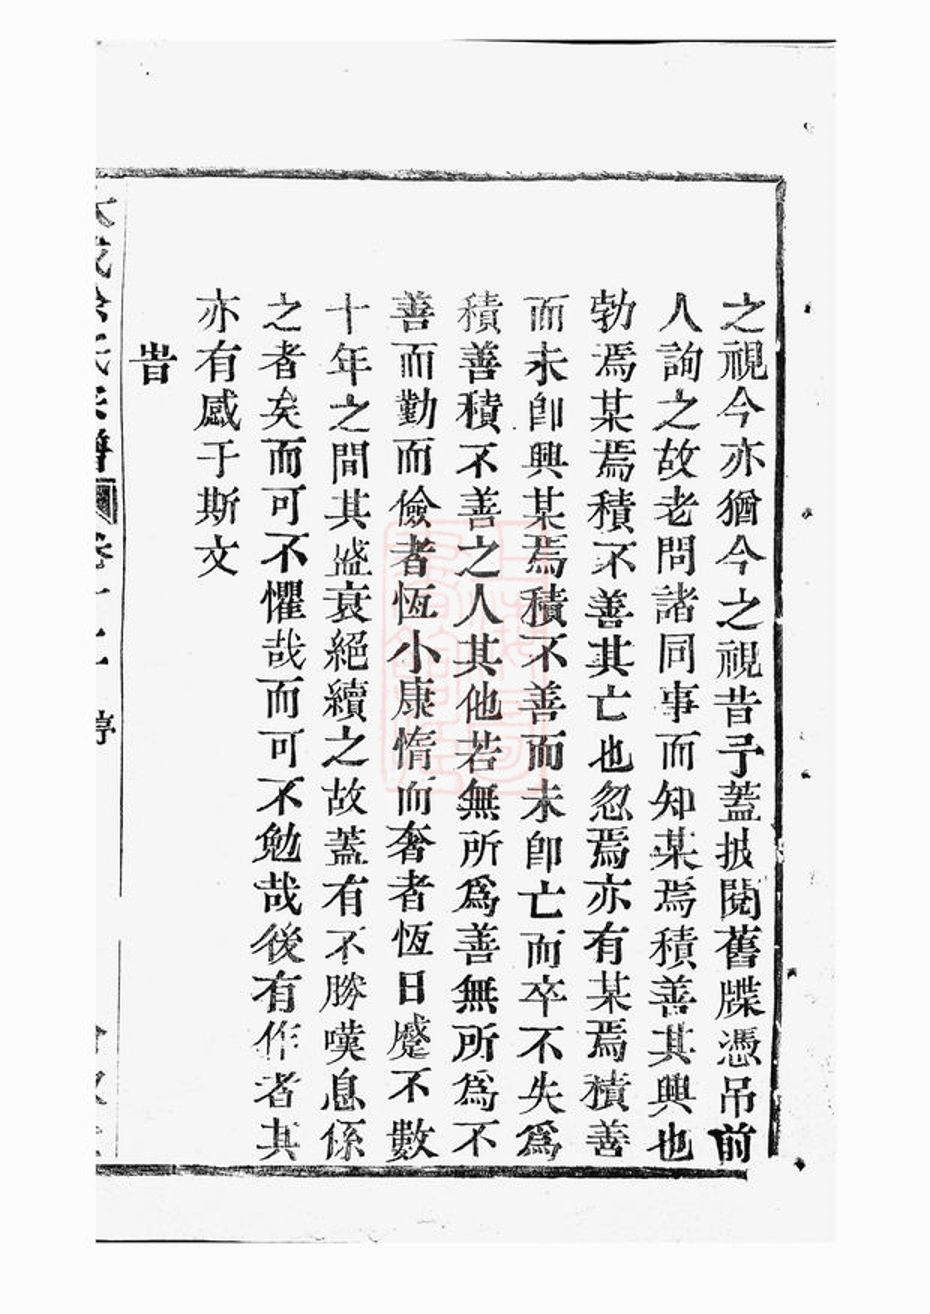 之視今亦猶今之視昔予蓋披閱舊牒憑吊前
人詢之故老問諸同事而知某焉積善其興也
勃焉某焉積不善其亡也忽焉亦有某焉積善
而未卽興某焉積不善而未卽亡而卒不失爲
積善積不善之人其他若無所爲善無所爲不
善而勤而儉者恆小康惰而奢者恆日蹙不數
十年之間其盛衰絕續之故蓋有不勝嘆息係
之者矣而可不懼哉而可不勉哉後有作者其
亦有感于斯文
旹
氏宗譜 卷十一